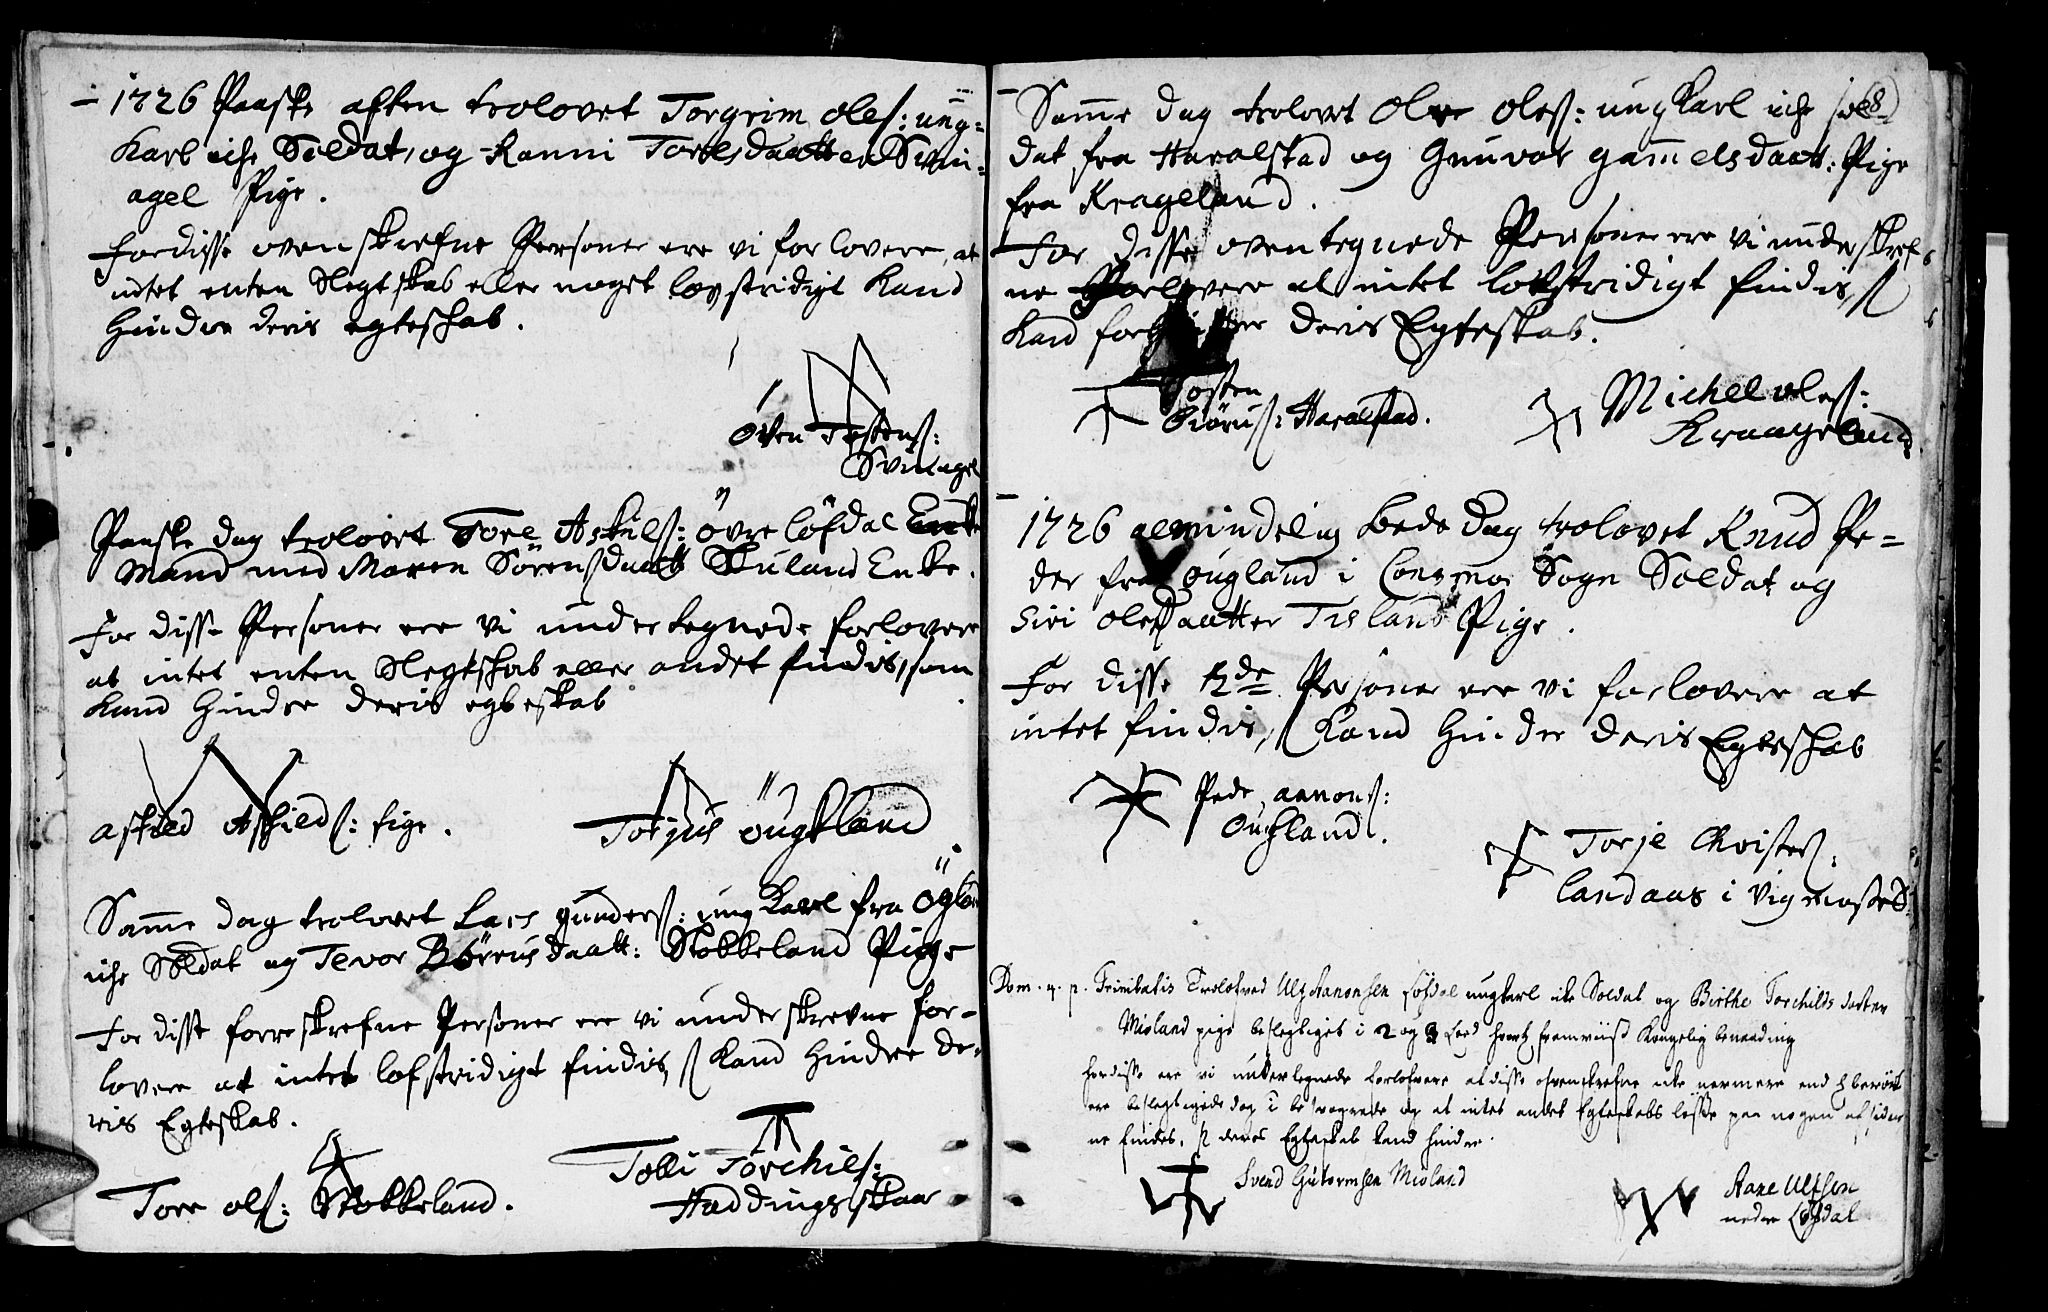 1726 Paaske aften trolovet Torgrim Oles: ung=
karl iche Soldat, og Ranni Torelsdaatter Svin-
agel Pige.
For disse ovenskrefne Personer ere vi forlovere, at
intet enten Slegtskab eller noget lovstridigt kand
hindre deris egteschab.
Öven Tostens:
Svinagel
Paaske dag trolovet Tore Askils: Övre löfdal Enke
Mand med Maren Sörensdaatt Skuland Enke.
For disse Personer ere vi undertegnede forlovere
at intet enten Slegtschab eller andet findis, som
kand hindre deris egteskab
Torjus öugland
Samme dag trolovet Lars gunders: ung karl fra Ögland
iche Soldat og Tevor Börrus daatt: Stokkeland Pige
For disse forreskrefne Personer ere vi underskrevne for-
lovere at intet lofstridigt findis, s kand hindre de-
ris Egteskab.
Tore ols: Stokkeland.
Tolli Torchils:
Haddingsskaar
8
Samme dag trolovet Ole Oles: ung karl iche sol-
dat fra Haralstad og Gunvor gammelsdaatt: Pige
fra Krageland.
For disse oventegnede Personer ere vi underskref
ne Forlovere at intet lovstridigt findis, s
kand forhindre deris Egteskab.
Tosten
Haralstad.
Michel oles:
Kraageland
1726 almindelig bededag trolovet Knud Pe=
der fra ougland i Sogn Soldat og
Siri olesdaatter Tisland Pige.
For disse 2de Personer ere vi forlovere at
intet findis, s kand hindre deris Egteschab
Peder aanons:
Ougland.
Torje Christens:
landaas i Vigmostad
Dom. 4. p. Trinitatis Trolofved Ulf Aanonsen Löfdal ungkarl ike Soldat og Birthe Torchilds daatter
Mioland pige beslegtiget i 2 og 3 Leed hvortil fremviist Kongelig benaading
For disse ere vi undertegnede Forlofvere at disse ofvenskrefne ikke nermere end berört
ere beslegtigede og i besvogrede og at intet andet Egteskabs löfte paa nogen af sider
ne findes, s deres Egteskab kand hindre.
Svend Gutormsen Mioland
Aane Ulfson
nedre Löfdal